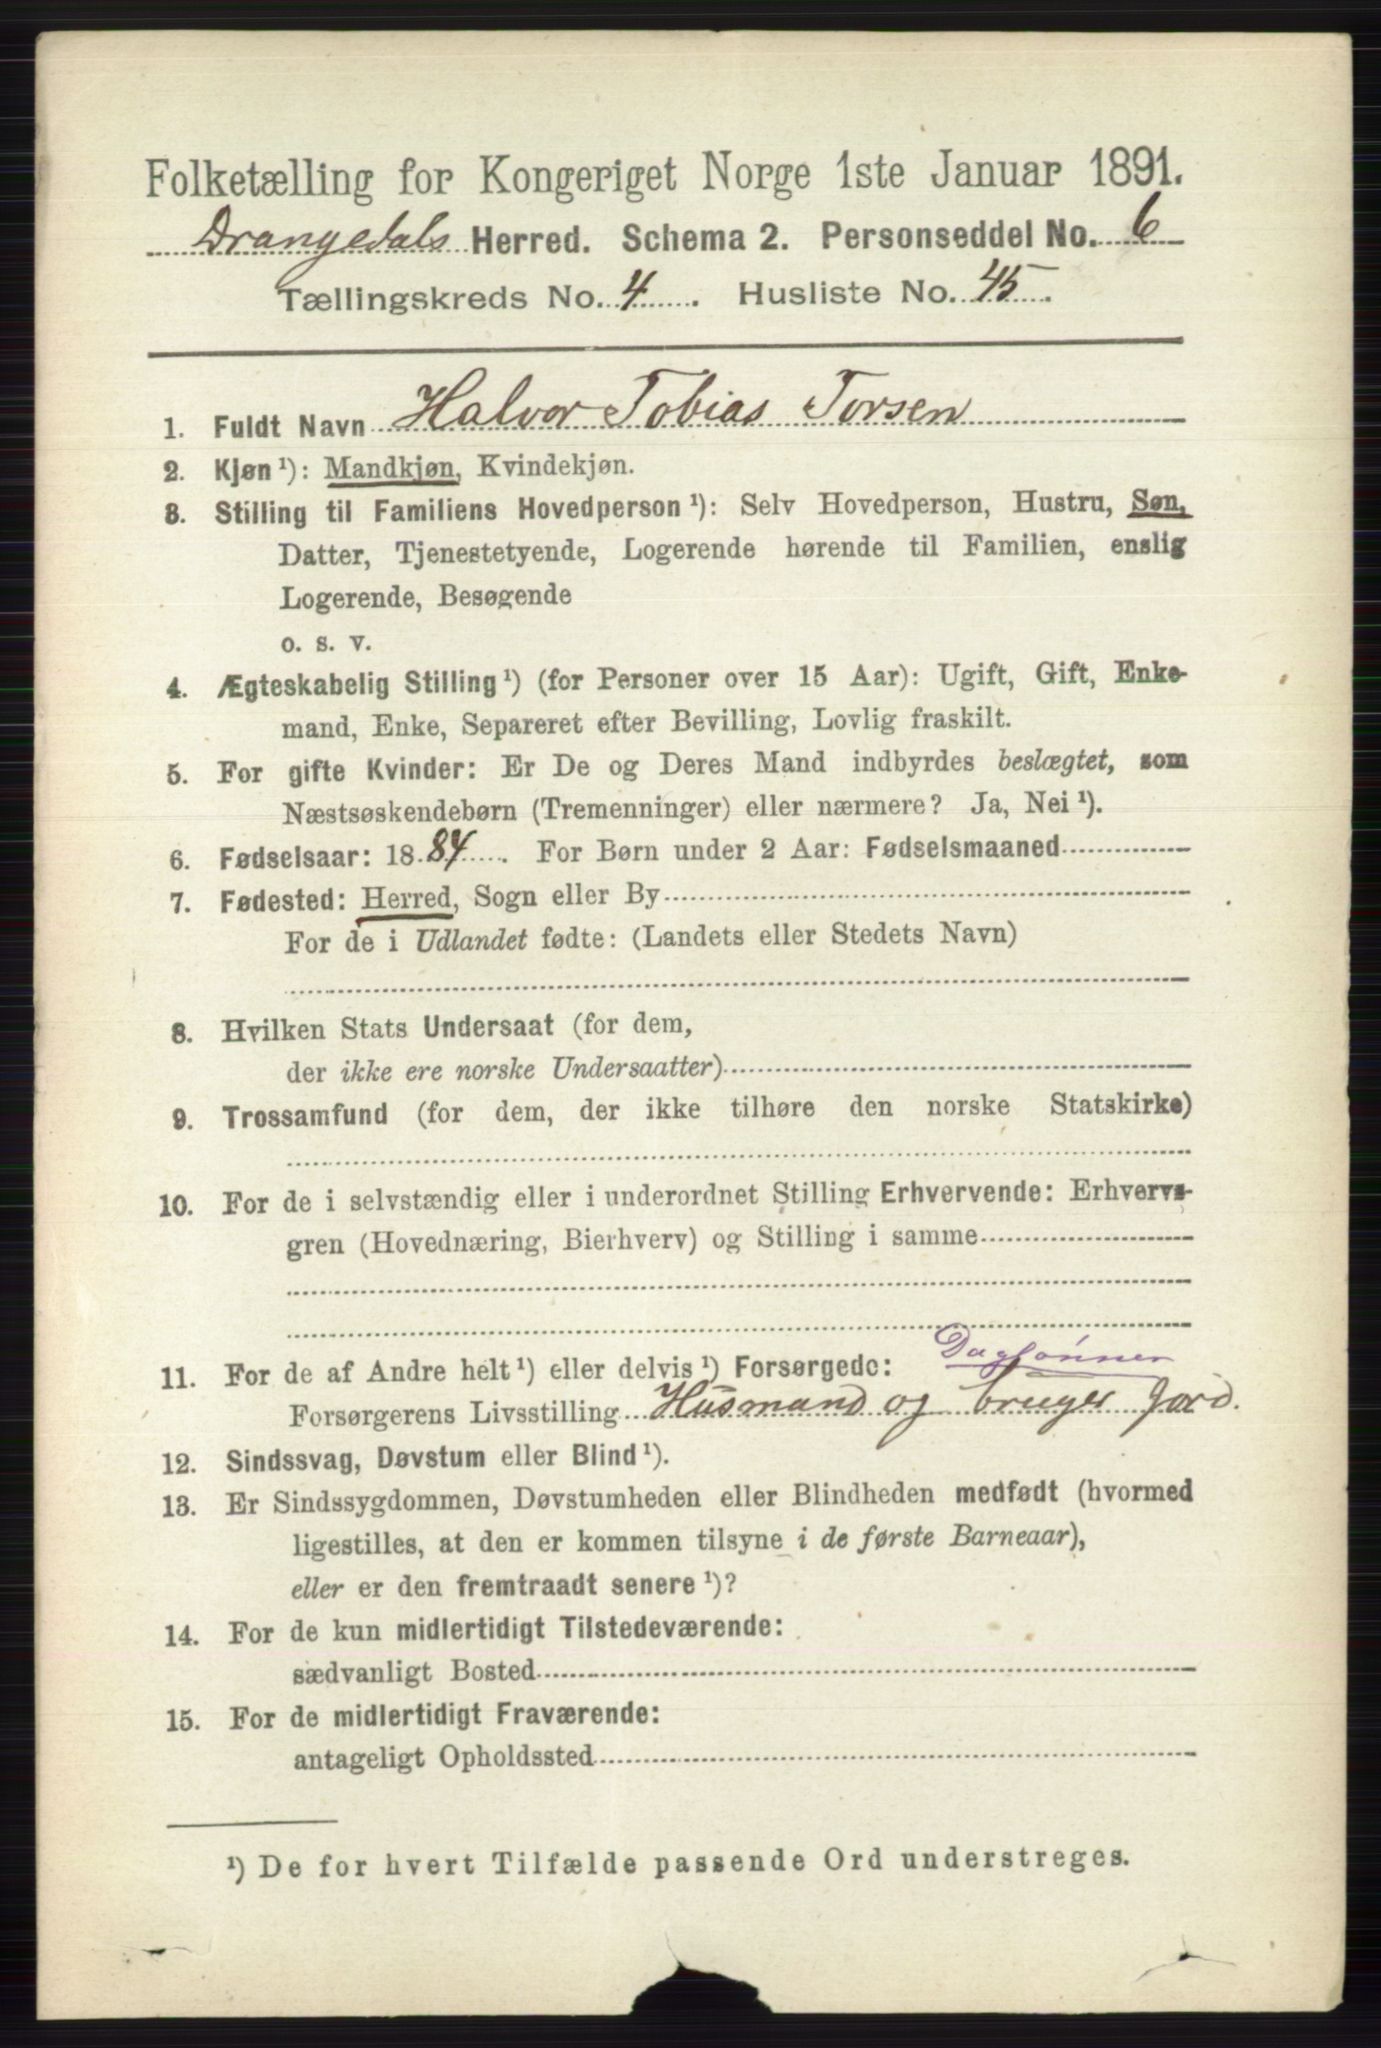 Folketælling for Kongeriget Norge 1ste Januar 1891.
Drangedals Herred. Schema 2. Personseddel No. 6
Tællingskreds No. 4 . Husliste No. 45 .
1. Fuldt Navn Halvor Tobias Torsen
2. Kjøn ¹): Mandkjøn, Kvindekjøn.
3. Stilling til Familiens Hovedperson ¹): Selv Hovedperson, Hustru, Søn,
Datter, Tjenestetyende, Logerende hørende til Familien, enslig
Logerende, Besøgende
o. s. v.
4. Ægteskabelig Stilling ¹) (for Personer over 15 Aar): Ugift, Gift, Enke-
mand, Enke, Separeret efter Bevilling, Lovlig fraskilt.
5. For gifte Kvinder: Er De og Deres Mand indbyrdes beslægtet, som
Næstsøskendebørn (Tremenninger) eller nærmere? Ja, Nei ¹).
6. Fødselsaar: 18 84 . For Børn under 2 Aar: Fødselsmaaned
7. Fødested: Herred, Sogn eller By
For de i Udlandet fødte: (Landets eller Stedets Navn)
8. Hvilken Stats Undersaat (for dem,
der ikke ere norske Undersaatter)
9. Trossamfund (for dem, der ikke tilhøre den norske Statskirke)
10. For de i selvstændig eller i underordnet Stilling Erhvervende: Erhvervs-
gren (Hovednæring, Bierhverv) og Stilling i samme
11. For de af Andre helt ¹) eller delvis ¹) Forsørgede: Daglønner
Forsørgerens Livsstilling Husmand og bruger jord.
12. Sindssvag, Døvstum eller Blind ¹).
13. Er Sindssygdommen, Døvstumheden eller Blindheden medfødt (hvormed
ligestilles, at den er kommen tilsyne i de første Barneaar),
eller er den fremtraadt senere ¹)?
14. For de kun midlertidigt Tilstedeværende:
sædvanligt Bosted
15. For de midlertidigt Fraværende:
antageligt Opholdssted
¹) De for hvert Tilfælde passende Ord understreges.